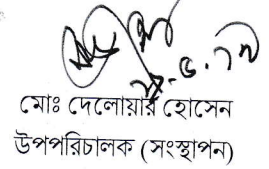 মোঃ দেলোয়ার হোসেন
উপপরিচালক (সংস্থাপন)